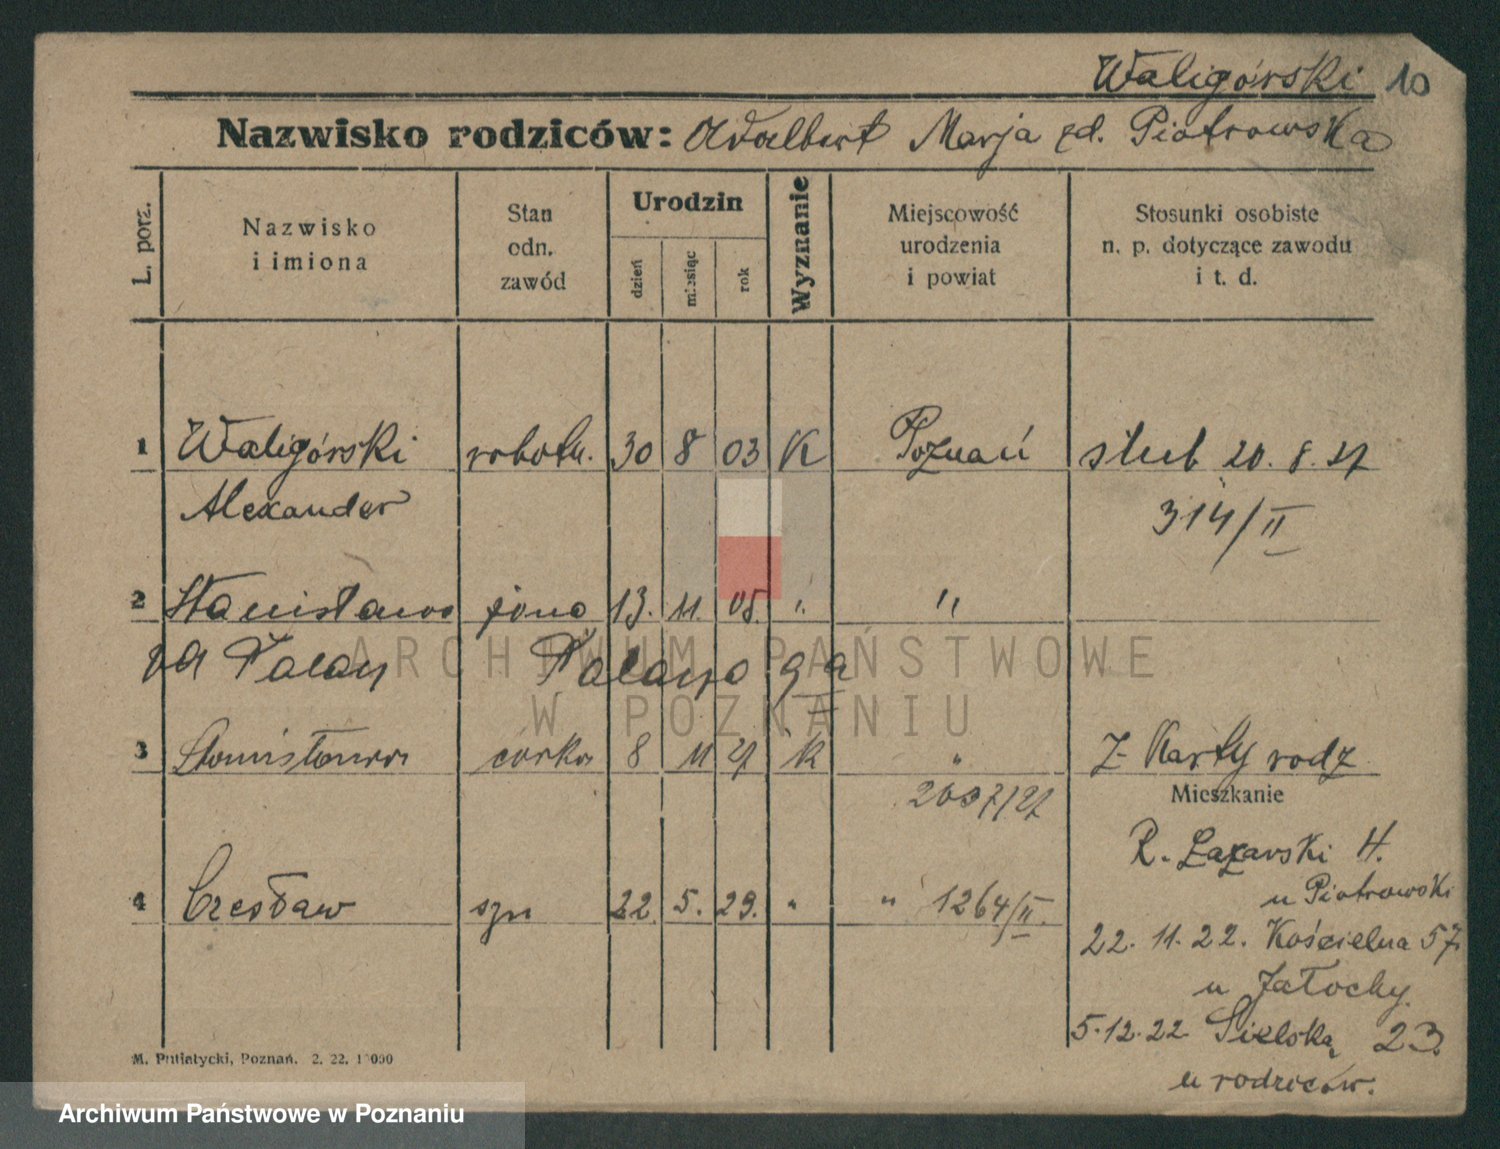 Waligórski 10
Nazwisko rodziców: Adalbert Marja zd. Piotrowska
L. porz.
Nazwisko
i imiona
Stan
odn.
zawód
Urodzin
dzień
miesiąc
rok
Wyznanie
Miejscowość
urodzenia
i powiat
Stosunki osobiste
n. p. dotyczące zawodu
i t. d.
1 Waligórski robotn. 30 8 03 K Poznań ślub 20. 8. 27
Alexander 314/II
2 Stanisława żona 13. 11. 05. " "
zd
3 Stanisława córka 8 11 27 k " Z Karty rodz
2637/27
Mieszkanie
R. Łazarski H.
u Piotrowski
4 Czesław syn 22. 5. 29. " " 1264/II.
22. 11. 22. Kościelna 57.
u Jałochy.
5.12.22 Sielska 23.
u rodziców.
M. Putiatycki, Poznań. 2. 22.
ARCHIWUM PAŃSTWOWE
W POZNANIU
Archiwum Państwowe w Poznaniu